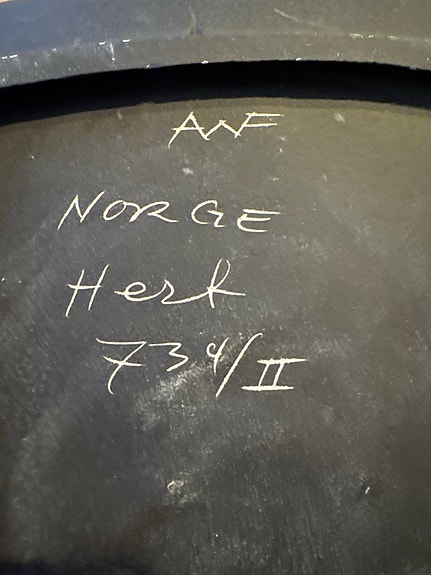 AWF
NORGE
Herk
734/II